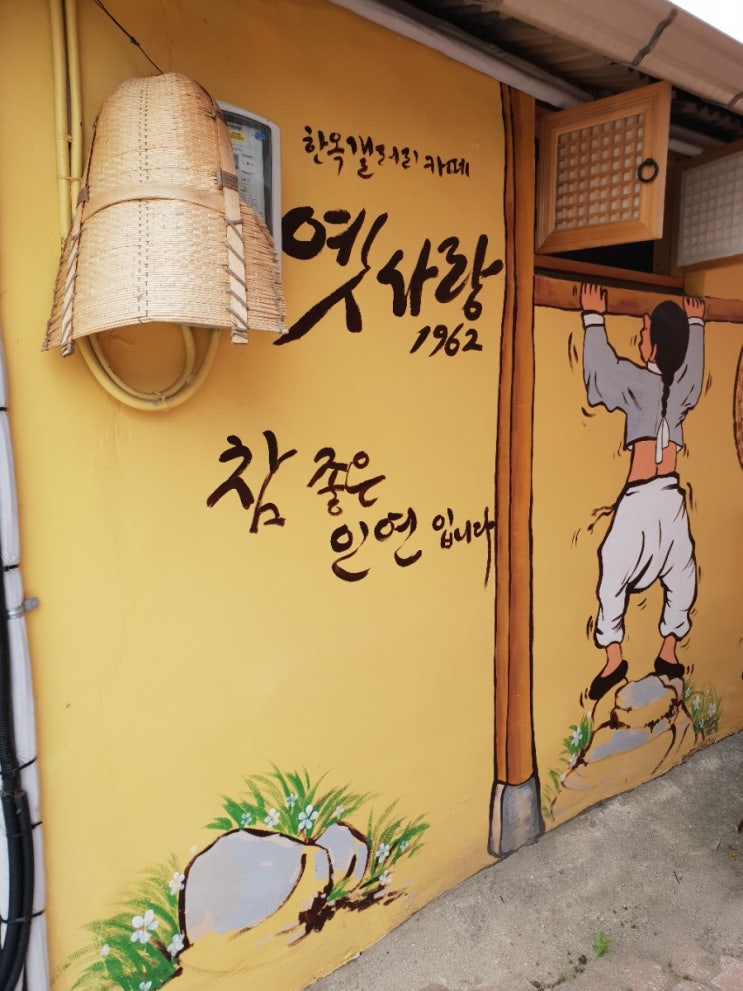 한옥갤러리 카페
옛사랑
1962
참 좋은
인연 입니다